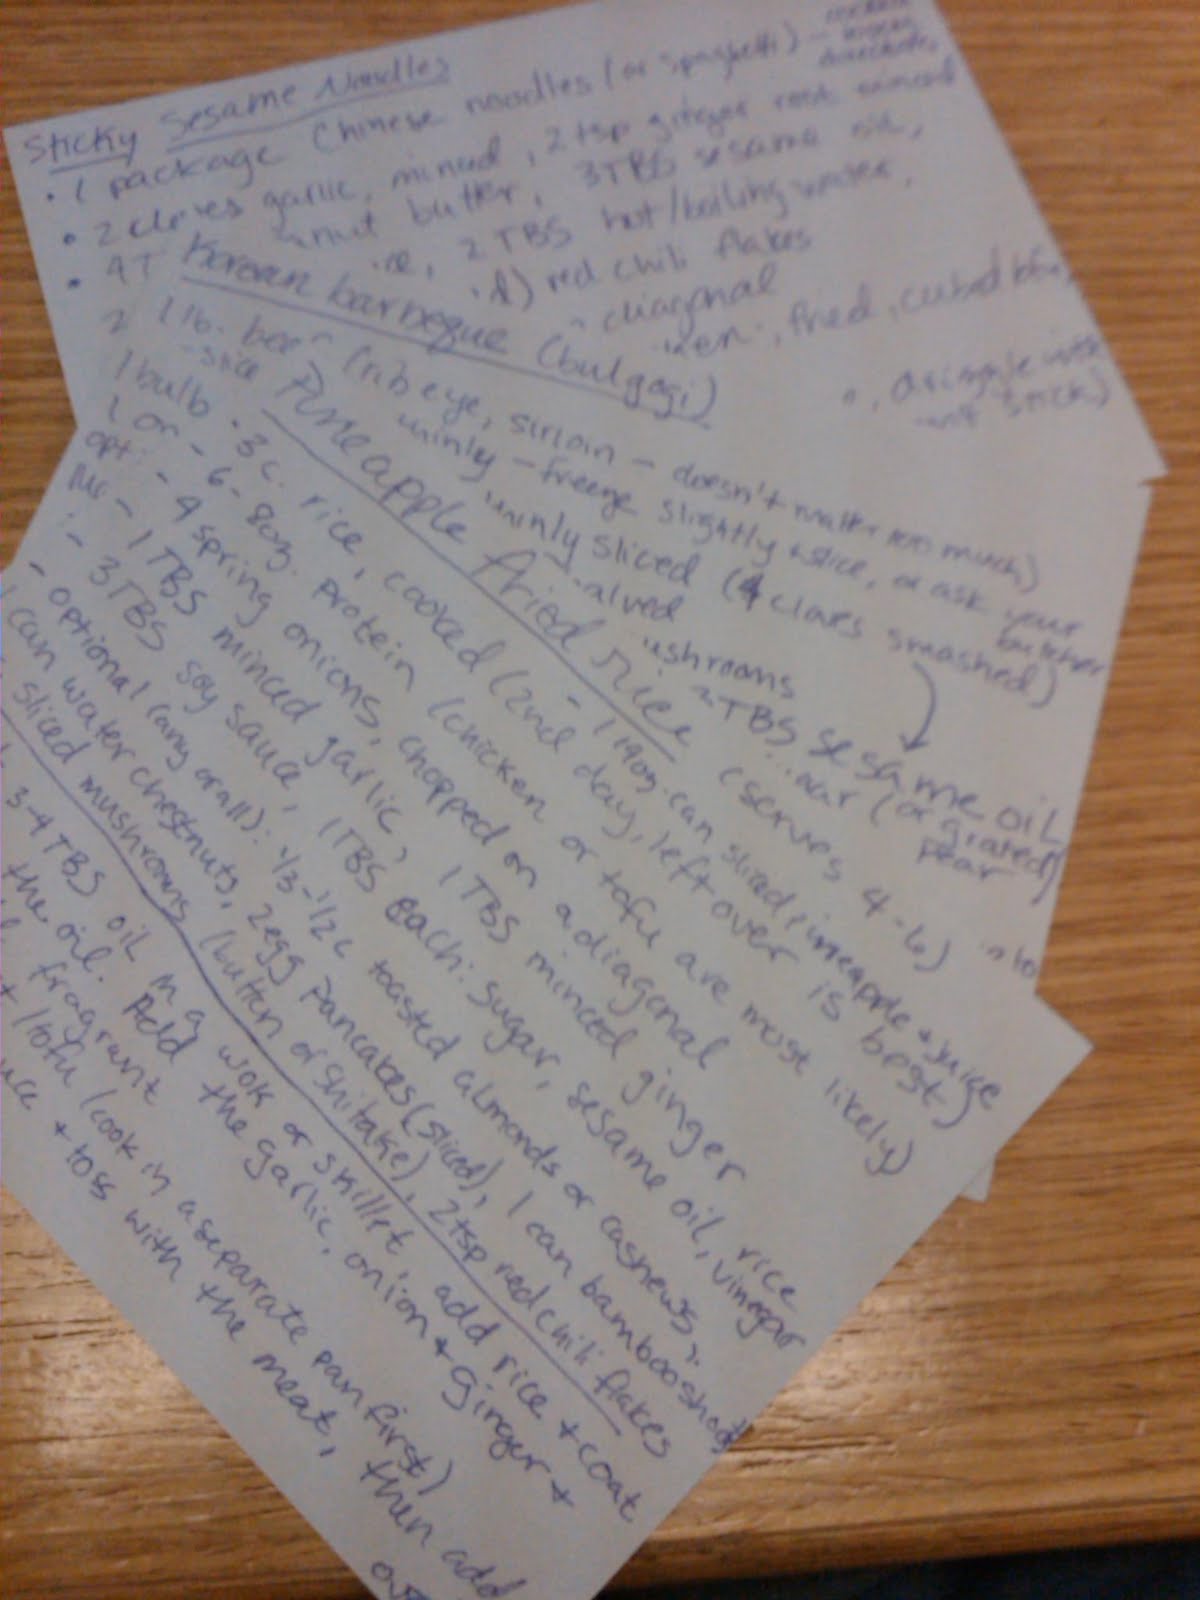 Sticky Sesame Noodles
• 1 package Chinese noodles (or spaghetti) –
• 2 cloves garlic, minced, 2 tsp ginger root minced
• 4T nut butter, 3TBS sesame oil,
2 TBS hot/boiling water,
red chili flakes
diagonal
fried, cubed
Korean barbeque (bulgogi)
1 lb. beef (rib eye, sirloin – doesn't matter too much)
slice thinly – freeze slightly + slice, or ask your butcher
1 bulb thinly sliced (4 cloves smashed)
1 or halved
opt. mushrooms
2TBS sesame oil
(or grated) pear
Pineapple fried rice (serves 4-6)
• 3c. rice, cooked (2nd day, left over is best)
– 6-8oz. protein (chicken or tofu are most likely)
– 1 can sliced pineapple + juice
– 4 spring onions, chopped on a diagonal
– 1 TBS minced garlic, 1 TBS minced ginger
– 3TBS soy sauce, 1TBS each: sugar, sesame oil, rice vinegar
– optional (any or all): 1/3-1/2c toasted almonds or cashews,
1 can water chestnuts, 2 egg pancakes (sliced), 1 can bamboo shoots
sliced mushrooms (button or shitake), 2tsp red chili flakes
3-4TBS oil in a wok or skillet, add rice + coat
the oil. Add the garlic, onion + ginger +
fragrant
tofu (cook in a separate pan first)
+ toss with the meat, then add